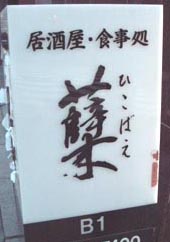 居酒屋・食事処
ひこばえ
蘖
B1